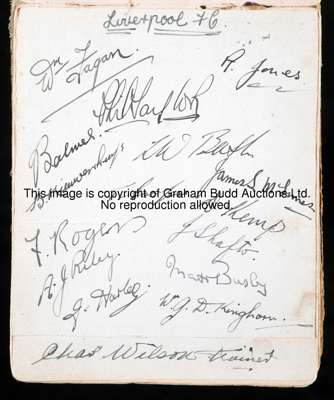 Liverpool F C
Wm Fagan
R. Jones
Phil Taylor
Balmer.
B. Nieuwenhuys
T W Bush
This image is copyright of Graham Budd Auctions Ltd.
No reproduction allowed.
James S McInnes
Kemp
F. Rogers
J Shafto.
A. J Riley.
Matt Busby
J. Harley.
W. G. D. Kinghorn.
Chas Wilson Trainer